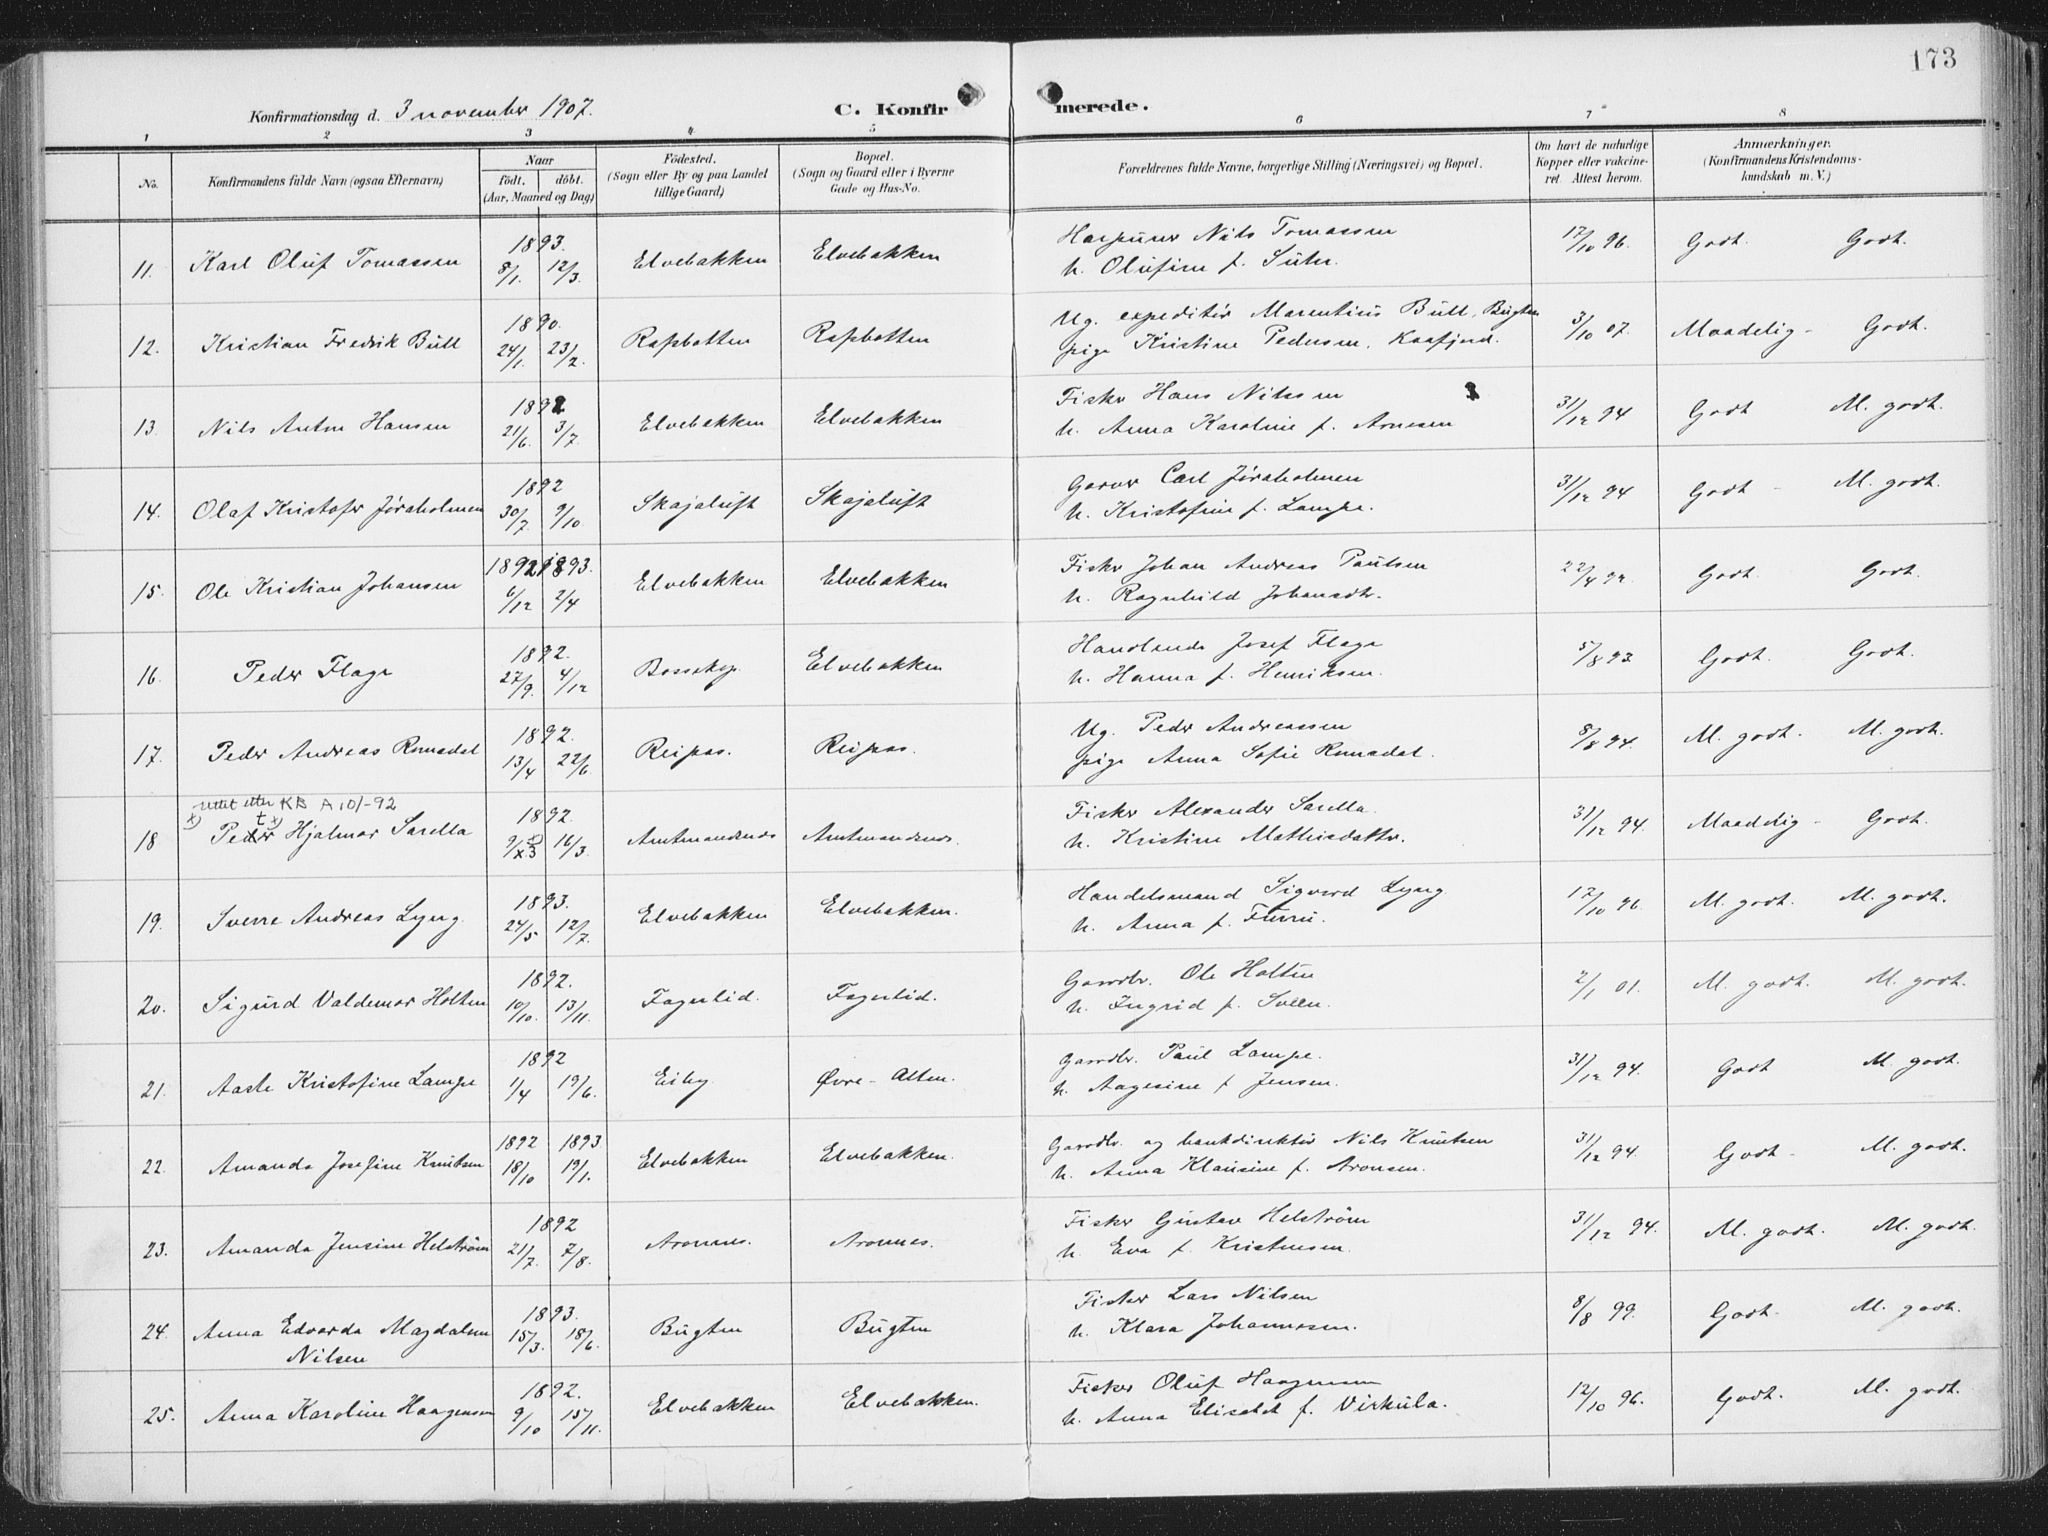 173
Konfirmationsdag d. 3 november 1907. C. Konfirmerede.
1 2 3 4 5 6 7 8
No. Konfirmandens fulde Navn (ogsaa Efternavn) Naar født. døbt. (Aar, Maaned og Dag) Fødested. (Sogn eller By og paa Landet tillige Gaard) Bopæl. (Sogn og Gaard eller i Byerne Gade og Hus-No. Forældrenes fulde Navne, borgerlige Stilling (Næringsvei) og Bopæl. Om havt de naturlige Kopper eller vakcineret. Attest herom. Anmærkninger. (Konfirmandens Kristendomskundskab m. V.)
11. Karl Oluf Tomassen 1893. 8/1. 12/3. Elvebakken Elvebakken Harpuner Nils Tomassen 17/10 96. Godt. Godt.
h. Olufine f. Suhr.
12. Kristian Fredrik Bull 1890. 24/1. 23/2. Rafsbotten Rafsbotten Ug. expeditør Marentius Bull, Bugten 3/10 07. Maadelig - Godt.
pige Kristine Pedersen, Kaafjord.
13. Nils Anton Hansen 1892 21/6. 3/7. Elvebakken Elvebakken Fisker Hans Nilssen 31/12 94 Godt M. godt.
h. Anna Karoline f. Arnesen
14. Olaf Kristofer Jøraholmen 1892 30/7. 9/10 Skajaluft Skajaluft Garver Carl Jøraholmen 31/12 94 Godt - M. godt.
h. Kristofine f. Lampe.
15. Ole Kristian Johansen 1892 1893. 6/12 2/4 Elvebakken Elvebakken Fisker Johan Andreas Paulsen 22/4 97. Godt. Godt.
h. Ragnhild Johansdtr.
16. Peder Flage 1892. 27/9. 4/12 Bossekop. Elvebakken Handlende Josef Flage 5/8 93. Godt. Godt.
h. Hanna f. Henriksen.
17. Peder Andreas Romsdal 1892. 13/4 22/6. Reipas. Reipas. Ug. Peder Andreassen 8/8 94. M. godt. M. godt.
pige Anna Sofie Romsdal.
x) rettet etter KB A 101-92
t x)
18 Peder Hjalmar Sarella 1892. 9/x 3 16/3. Amtmandsnes Amtmandsnes. Fisker Alexander Sarella. 31/12 94. Maadelig - Godt.
h. Kristine Mathisdatter.
19. Sverre Andreas Lyng. 1893. 24/5 12/7. Elvebakken Elvebakken. Handelsmand Sigverd Lyng 17/10 96. M. godt. M. godt.
h. Anna f. Furru.
20. Sigurd Valdemar Holten 1892. 10/10. 13/11. Fagerlid. Fagerlid. Gaardbr. Ole Holten 2/1 01. M. godt. M. godt.
h. Ingrid f. Sveen.
21. Aasle Kristofine Lampe 1892 1/4 19/6. Eiby. Øvre - Alten. Gaardbr. Paul Lampe. 31/12 94. Godt M. godt.
h. Aagesine f Jensen.
22. Amanda Josefine Knutsen 1892 1893 18/10 19/1. Elvebakken Elvebakken. Gaardbr. og bankdirektør Nils Knutsen 31/12 94. Godt - M. godt.
h. Anna Klausine f. Aronsen.
23. Amanda Jensine Helstrøm 1892 21/7. 7/8. Aronnes. Aronnes. Fisker Gustav Helstrøm 31/12 94. M. godt. M. godt.
h. Eva f. Kristensen.
24. Anna Edvarda Magdalene 1893. 15/3. 18/6. Bugten Bugten Fisker Lars Nilsen 8/8 99. Godt. M. godt.
Nilsen h. Klara Johannesen.
25. Anna Karoline Haagensen 1892. 9/10 15/11. Elvebakken Elvebakken. Fisker Oluf Haagensen 12/10 96. Godt. M. godt.
h. Anna Elisabet f. Virkula.